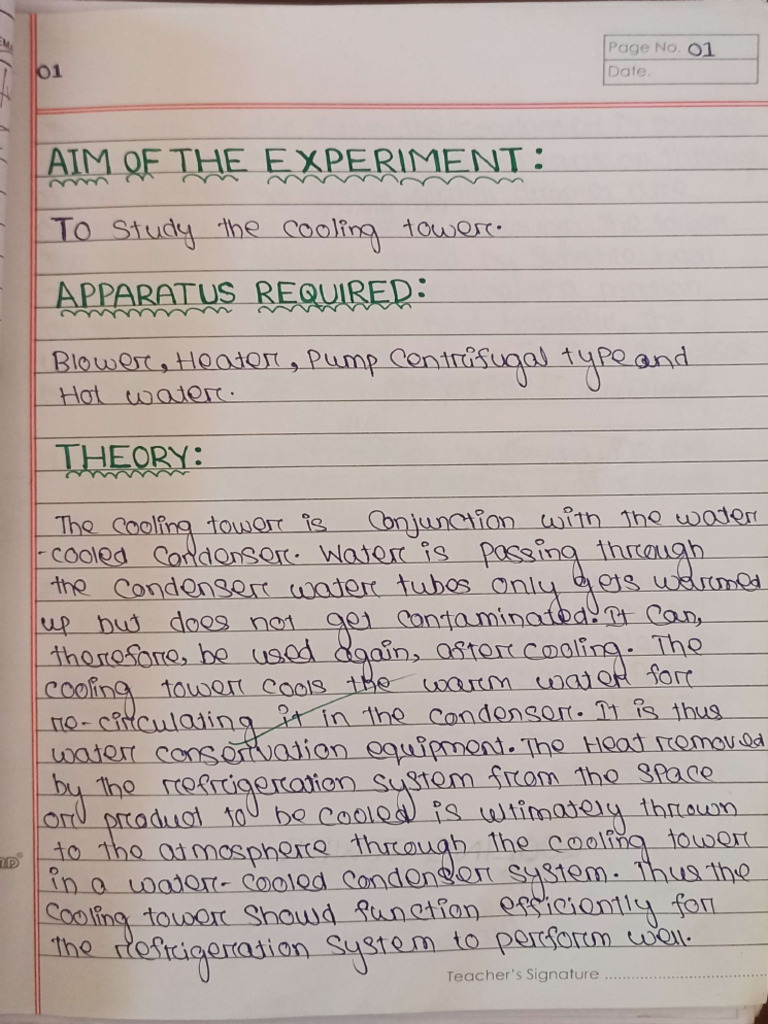 Page No. 01
01
Date.
AIM OF THE EXPERIMENT:
To study the cooling tower.
APPARATUS REQUIRED:
Blower, Heater, Pump centrifugal type and
Hot water.
THEORY:
The cooling tower is conjunction with the water
-cooled condenser. Water is passing through
the condenser water tubes only gets warmed
up but does not get contaminated. It can,
therefore, be used again, after cooling. The
cooling tower cools the warm water for
re-circulating it in the condenser. It is thus
water conservation equipment. The Heat removed
by the refrigeration system from the space
or product to be cooled is ultimately thrown
to the atmosphere through the cooling tower
in a water-cooled condenser system. Thus the
cooling tower should function efficiently for
the refrigeration system to perform well.
Teacher's Signature